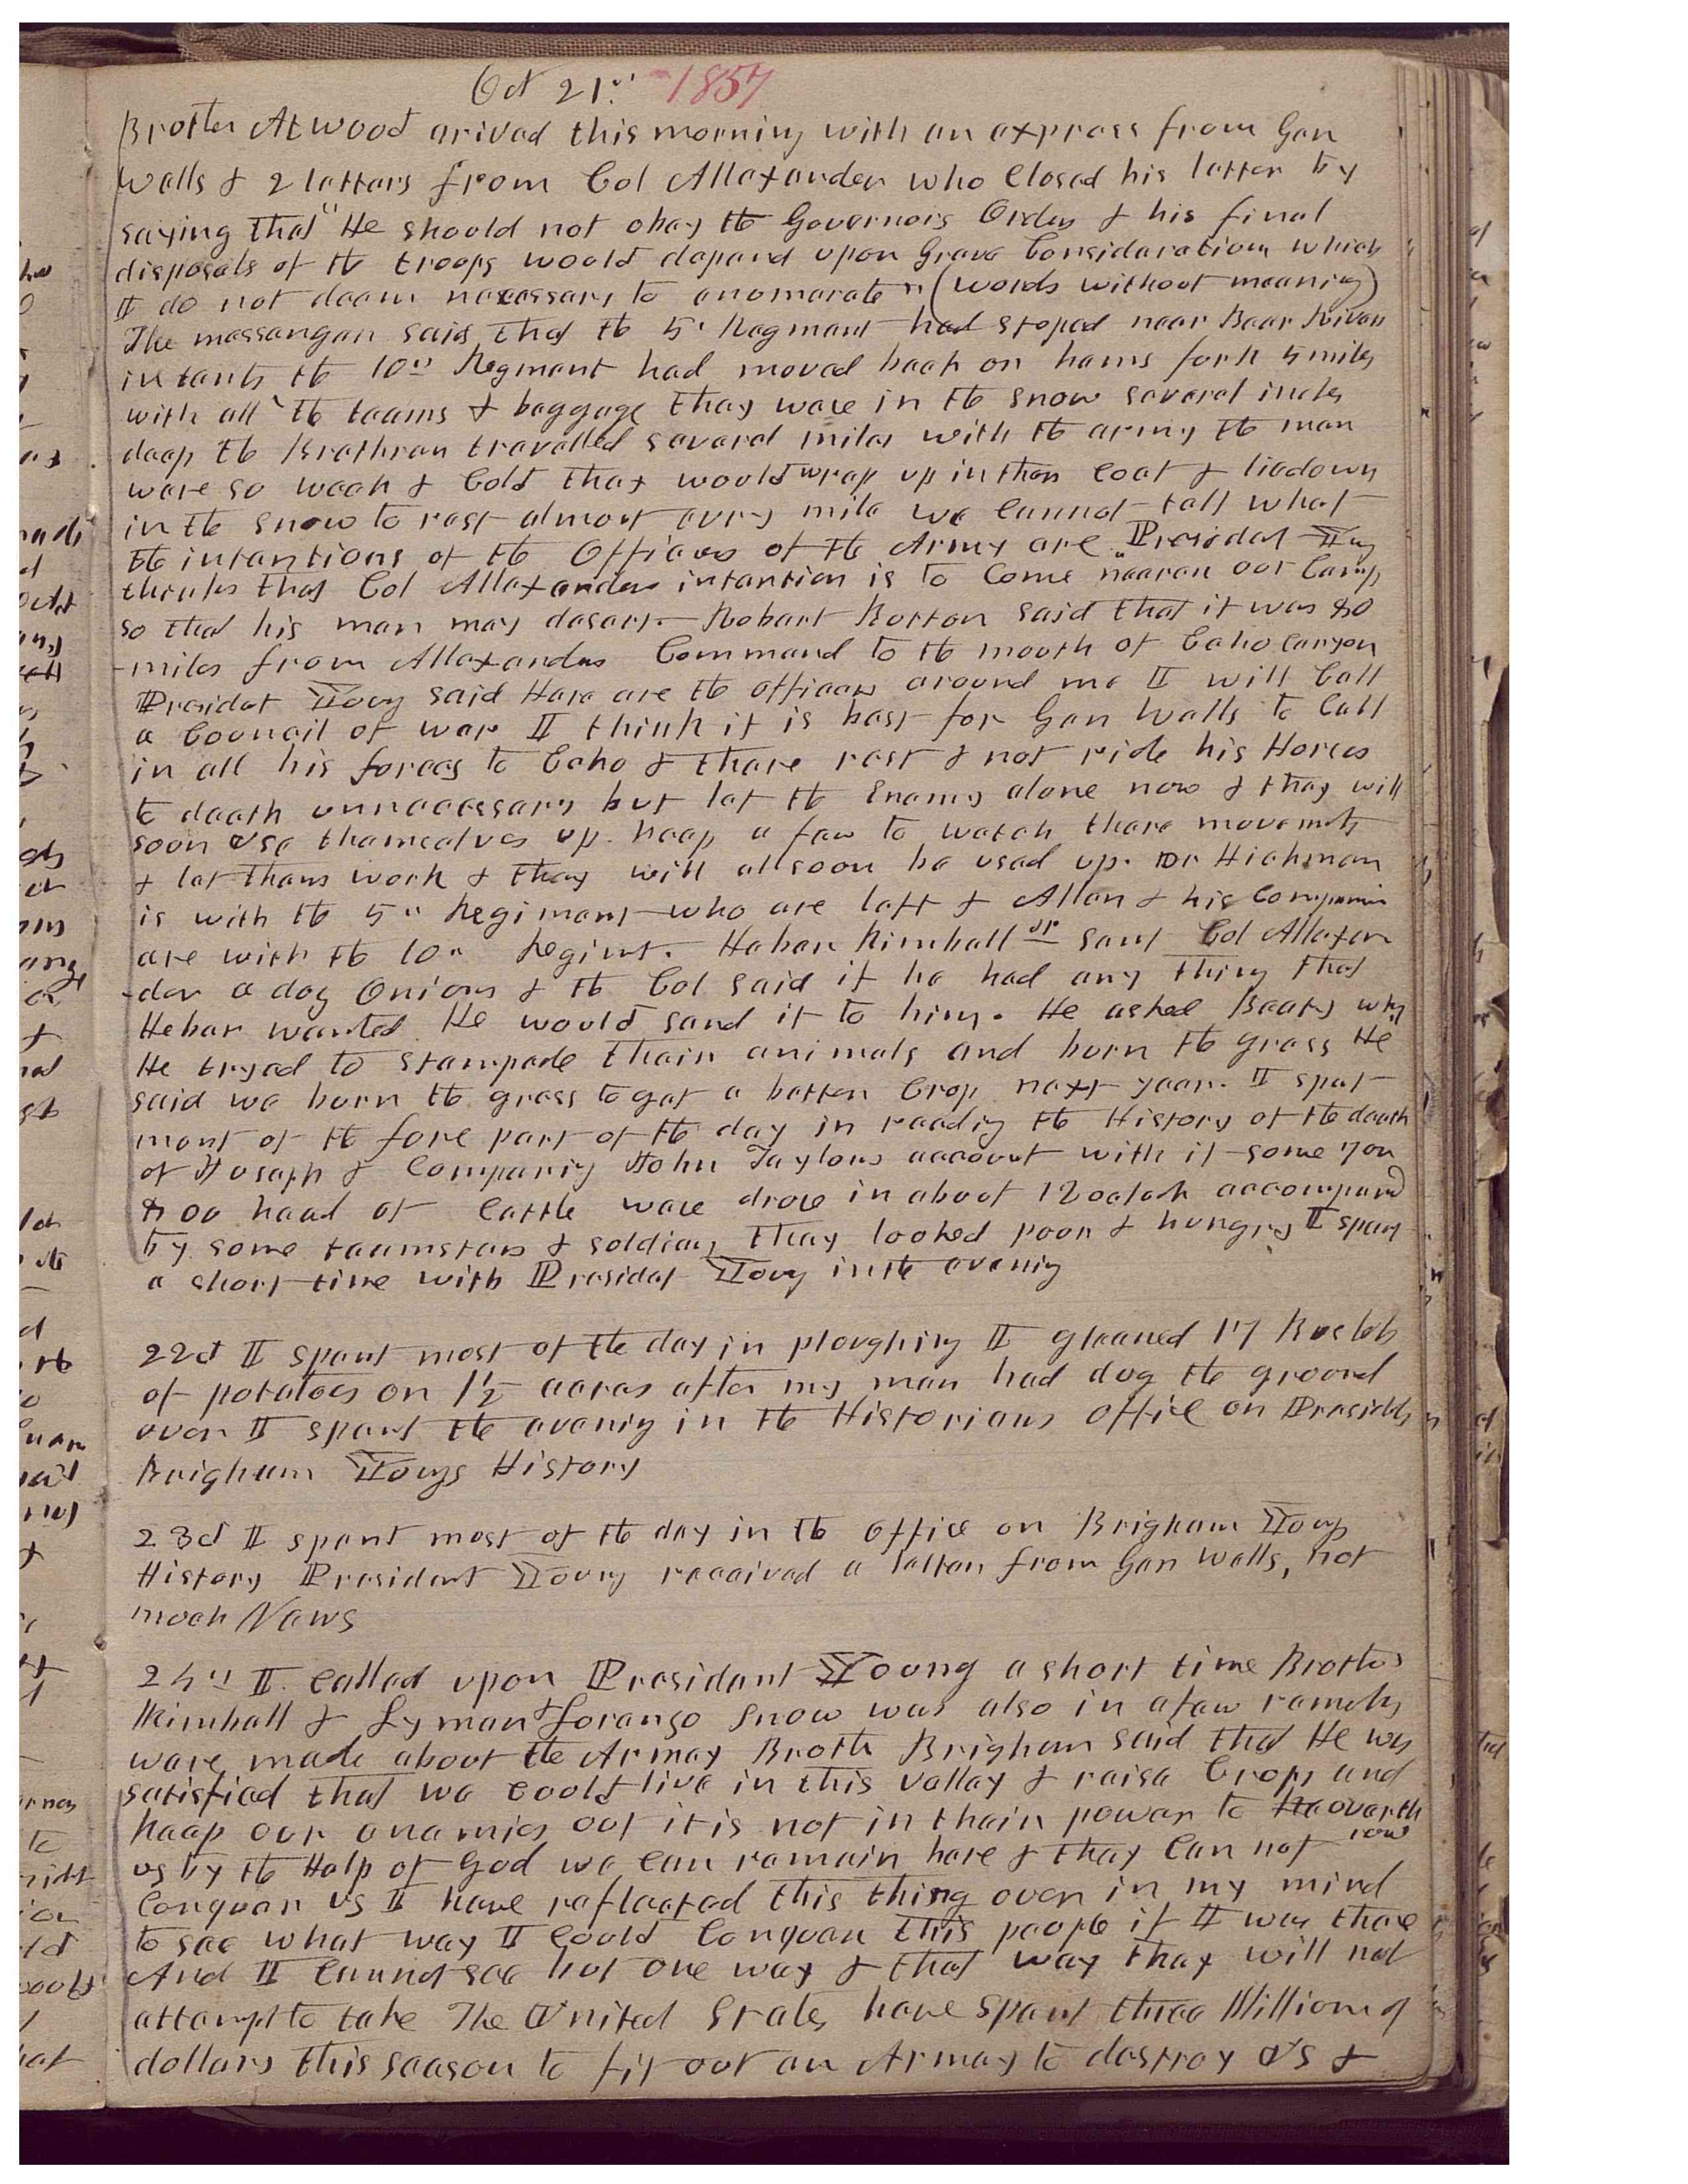 Oct 21st 1857
Brother Atwood arived this morning with an express from Gen
Wells & 2 letters from Col Allexander who Closed his letter by
saying that "He should not obey the Governor's Orders & his final
disposals of the troops would depend upon Grave Considerations which
I do not deem necessary to enomerate" (words without meaning)
The messenger said that the 5th Regment had stoped near Bear River
in tents the 10th Regment had moved back on hams fork 5 miles
with all the teams & baggage they ware in the snow several inches
deep the Brethren travelled several miles with the army the men
ware so weak & Cold they would wrap up in their coat & lie down
in the snow to rest almost evry mile we cannot tell what
the intentions of the Officers of the Army are Presidet Young
thinks that Col Allexanders intention is to Come nearer our Camp
so that his men may desert. Robert Borton said that it was 80
miles from Allexanders Command to the mouth of Echo Canyon
Presidet Young said Here are the officers around me I will Call
a Council of war I think it is best for Gen Wells to Call
in all his forces to Echo & there rest & not ride his Horses
to death unnecessary but let the Enemy alone now & they will
soon use themselves up. keep a few to watch there movemets
& let them work & they will all soon be used up. Dr Hickman
is with the 5th Regiment who are left & Allen & his Companion
are with the 10th Regimt. Heber Kimball jr sent Col Allexan
-der a doz Onions & the Col said if he had any thing that
Heber wanted He would send it to him. He asked Beaty why
He tryed to stampede their animals and burn the grass He
said we burn the grass to get a better Crop next year. I spet
most of the fore part of the day in readig the History of the death
of Joseph & Comparing John Taylors account with it some 7 or
800 head of Cattle ware drove in about 12 oclok accompand
by some teamsters & soldiers they looked poor & hungry I spent
a short time with Presidet Young in the evening

22d I spent most of the day in ploughing I gleaned 17 Bushels
of potatoes on 1½ acres after my men had dug the ground
over I spent the evenig in the Historians office on Presidets
Brigham Youngs History

23d I spent most of the day in the office on Brigham Youngs
History President Young received a letter from Gen Wells, not
much News

24th I called upon President Young a short time Brothers
Kimball & Lyman & Lorenzo Snow was also in a few remarks
ware made about the Armey Brother Brigham said that He was
satisfied that we could live in this valley & raise Crops and
keep our enemies out it is not in their power to overth
row
us by the Help of God we can remain here & they Can not
Conquer us I have reflected this thing over in my mind
to see what way I could Conquer this people if I was there
And I cannot see but one way & that way they will not
attempt to take The United States have spent three Millions of
dollars this season to fit out an Armey to destroy us &